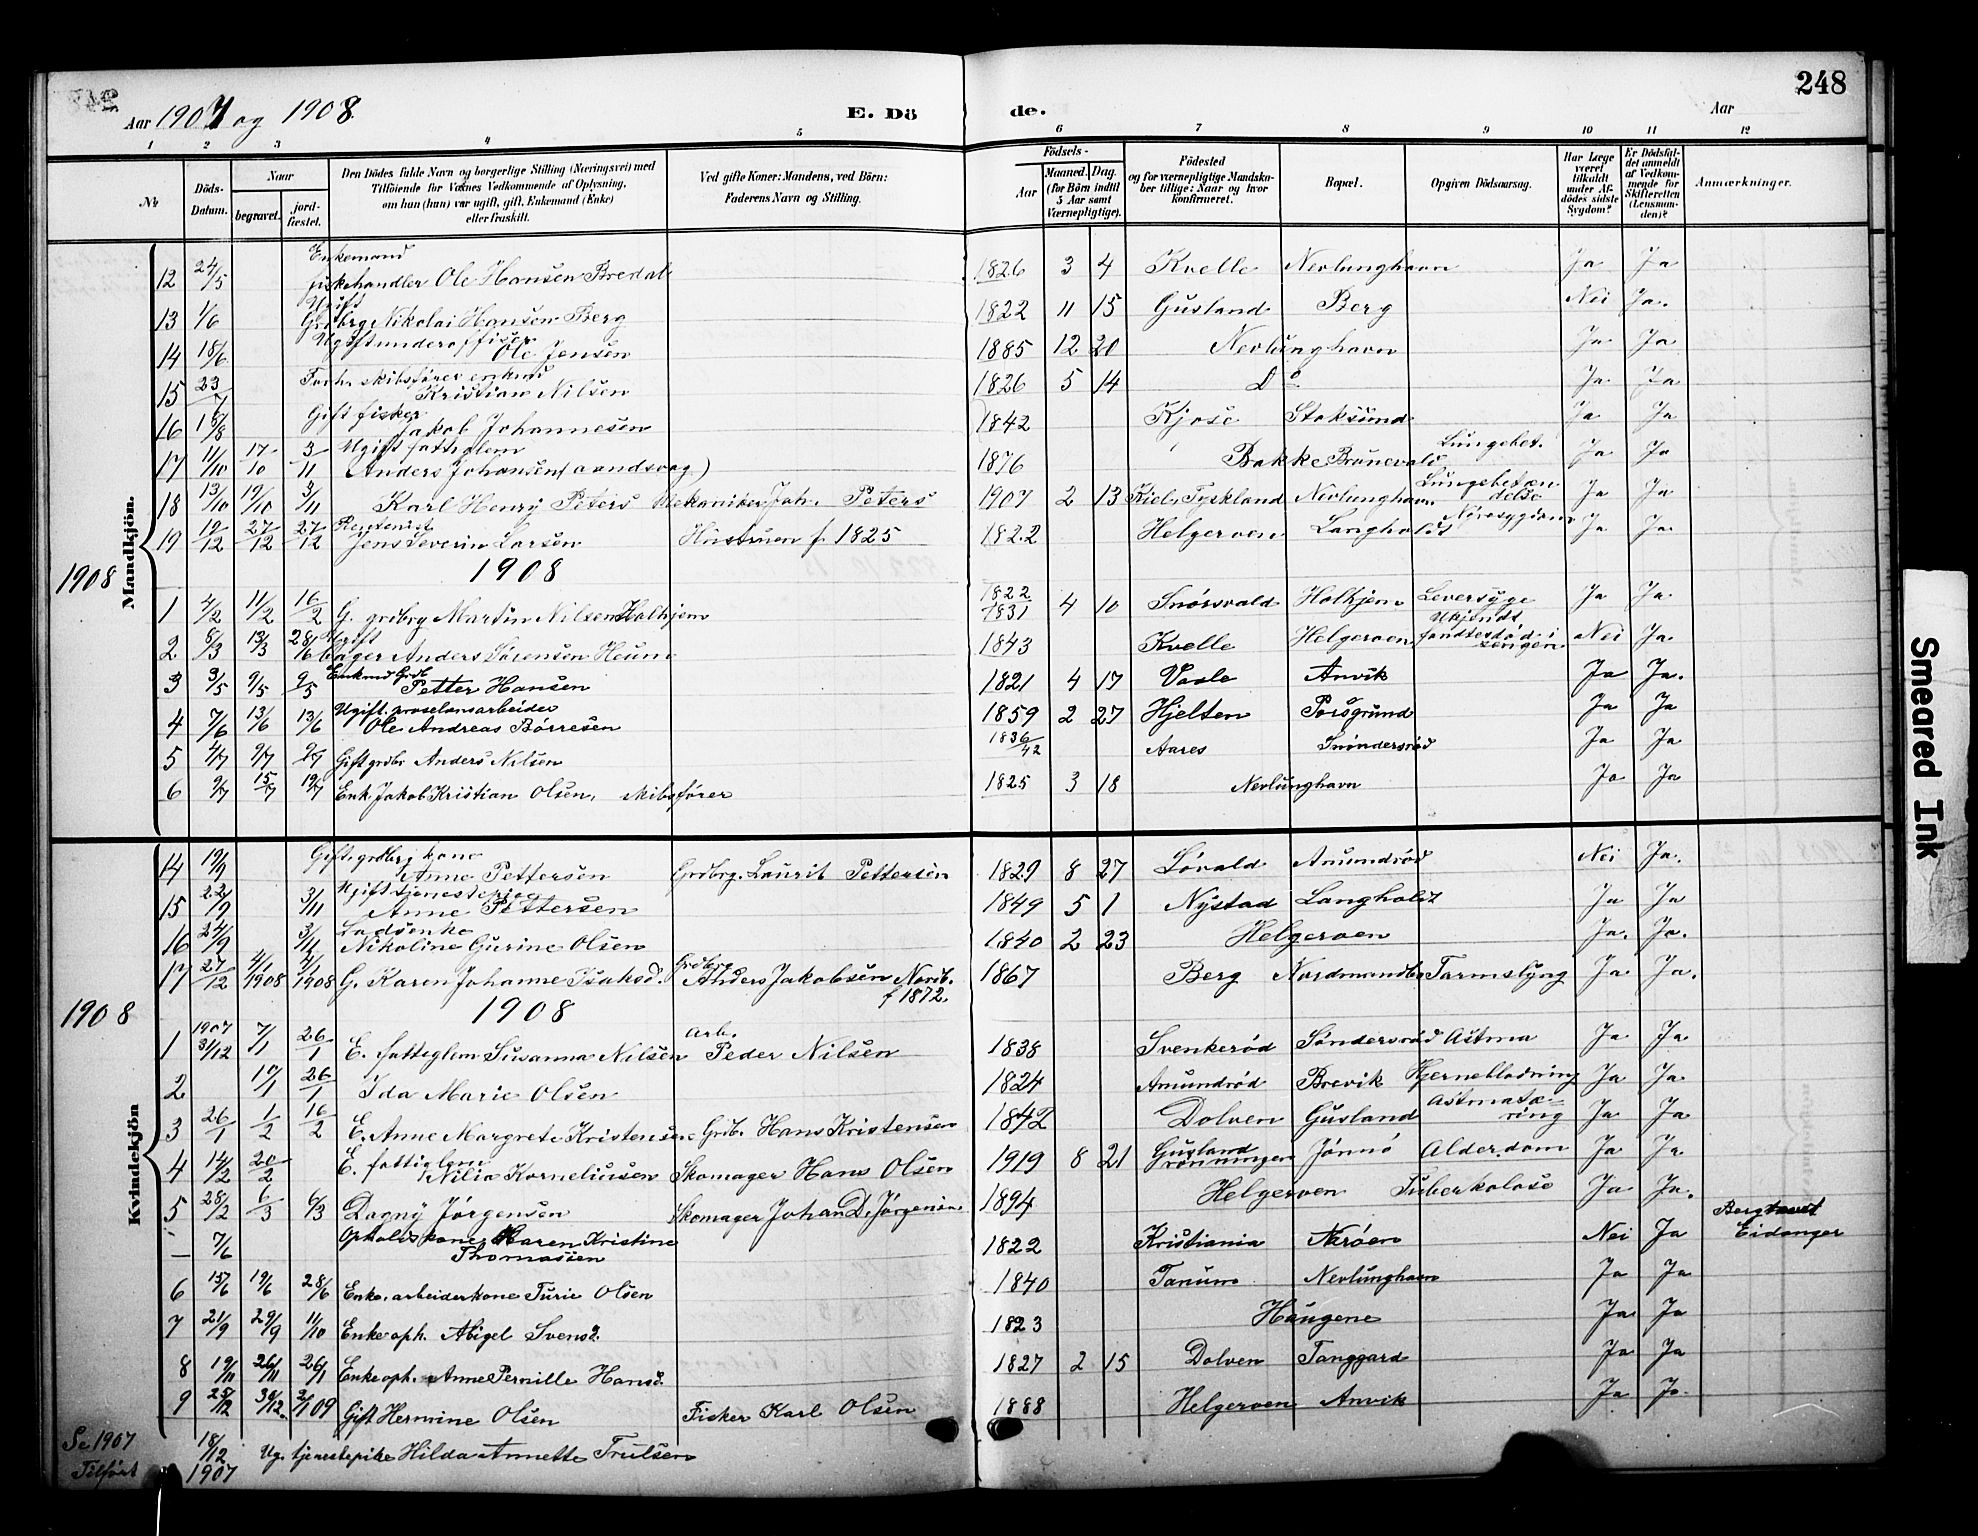 248
Aar 1907 og 1908.
E. Dö
de.
Aar
1 2 3 4 5 6 7 8 9 10 11 12
№
Döds-Datum.
Naar
begravet.
jord-fæstet.
Den Dödes fulde Navn og borgerlige Stilling (Næringsvei) med
Tilföiende for Voxnes Vedkommende af Oplysning,
om han (hun) var ugift, gift, Enkemand (Enke)
eller fraskilt.
Ved gifte Koner: Mandens, ved Börn:
Faderens Navn og Stilling.
Födsels-
Aar
Maaned. Dag.
(for Börn indtil
5 Aar samt
Værnepligtige).
Födested
og for værnepligtige Mandska-
ber tillige: Naar og hvor
konfirmeret.
Bopæl.
Opgiven Dödsaarsag.
Har Læge
været
tilkaldt
under Af-
dödes sidste
Sygdom?
Er Dödsfal-
det anmeldt
af Vedkom-
mende for
Skifteretten
(Lensman-
den)?
Anmærkninger.
Mandkjön.
12 24/5 Enkemand fiskehandler Ole Hansen Bredal 1826 3 4 Kvelle Nevlunghavn Ja Ja
13 1/6 Ugift Grdbrg Nikolai Hansen Berg 1822 11 15 Gusland Berg Nei Ja.
14 18/6 Ugift underoffiser Ole Jensen 1885 12 20 Nevlunghavn Ja Ja
15 23/7 Forh. skibsfører enkmd Kristian Nilsen 1826 5 14 Do Ja Ja
16 18/8 Gift fisker Jakob Johannesen 1842 Kjose Stoksund Ja Ja
17 11/10 17/10 3/11 Ugift fattiglem Anders Johansen (aandsvag) 1876 Bakke Brunevald Lungebet. Ja Ja
18 13/10 19/10 3/11 Karl Henry Peters Mekaniker Joh. Peters 1907 2 13 Kiel, Tyskland Nevlunghavn Lungebetændelse Ja Ja
19 19/12 27/12 27/12 Rentenist Jens Severin Larsen Hustruen f. 1825 1822 Helgeroen Langholdt Ja Ja.
1908
1908
1 4/2 11/2 16/2 G. grdbrg Martin Nilsen Holhjem 1822/1831 4 10 Snørsvald Holhjem Leversyge Ja Ja
2 5/3 13/3 28/6 Ugift bager Anders Sørensen Heum 1843 Kvelle Helgeroen Ukjendt fandtes død i sengen Nei Ja.
3 3/5 9/5 9/5 Enkmd Grdb Petter Hansen 1821 4 17 Vasle Anvik Ja Ja.
4 7/6 13/6 13/6 Ugift. proselansarbeider Ole Andreas Børresen 1859 2 27 Hjelten Porsgrund Ja Ja
5 4/7 9/7 9/7 Gift grdbr Anders Nilsen 1836/42 Aares Snøndersrød Ja Ja
6 9/7 15/7 19/7 Enk. Jakob Kristian Olsen, skibsfører 1825 3 18 Nevlunghavn Ja Ja
Kvindekjön
14 19/9 Gift. grdbrg kone Anne Pettersen Grdbrg. Laurit Pettersen 1829 8 27 Løvald Anundrød Nei Ja.
15 22/9 3/11 Ugift tjenestepige Anne Pettersen 1849 5 1 Nystad Langholdt Ja Ja
16 24/9 3/11 Lodsenke Nikoline Gurine Olsen 1840 2 23 Helgeroen Ja. Ja.
17 27/12 4/1 1908 4/1 1908 G. Karen Johanne Isaksd. Grdbrg Anders Jakobsen Nordb. f 1872. 1867 Berg Nordmandb. Tarmslyng Ja Ja.
1908
1908
1 1907 31/12 7/1 26/1 E. fattiglem Susanna Nilsen Arb. Peder Nilsen 1838 Svenkerød Søndersrød Astma Ja Ja
2 17/1 26/1 Ida Marie Olsen 1824 Anundrød Brevik Hjerneblødning Ja Ja.
3 26/1 1/2 16/2 E. Anne Margrete Kristensen Grdb. Hans Kristensen 1842 Dolven Gusland Ja Ja
4 14/2 20/2 E. fattiglem Nilia Korneliusen Skomager Hans Olsen 1919 8 21 Gusland rønningen Jønnø Alderdom Ja Ja
5 28/2 6/3 6/3 Dagny Jørgensen Skomager Johan D. Jørgensen 1894 Helgeroen Tuberkolose Ja Ja.
— 7/6 Opholdskone Maren Kristine Thomassen 1822 Kristiania Nærøen Nei Ja Eidanger
6 15/6 19/6 28/6 Enke. arbeiderkone Turie Olsen 1840 Tanum Nevlunghavn Ja Ja
7 21/9 29/9 11/10 Enke oph. Abigel Svensd. 1823 Haugene Ja Ja
8 19/11 26/11 26/1 Enke oph. Anne Pernille Hansd. 1827 2 15 Dolven Tanggard Ja Ja
9 25/12 30/12. 2/1 09 Gift Hermine Olsen Fisker Karl Olsen 1888 Helgeroen Anvik Ja Ja
Se 1907 Tilført 18/12 1907 Ug. tjenestepike Hilda Annette Trulsen
Smeared Ink